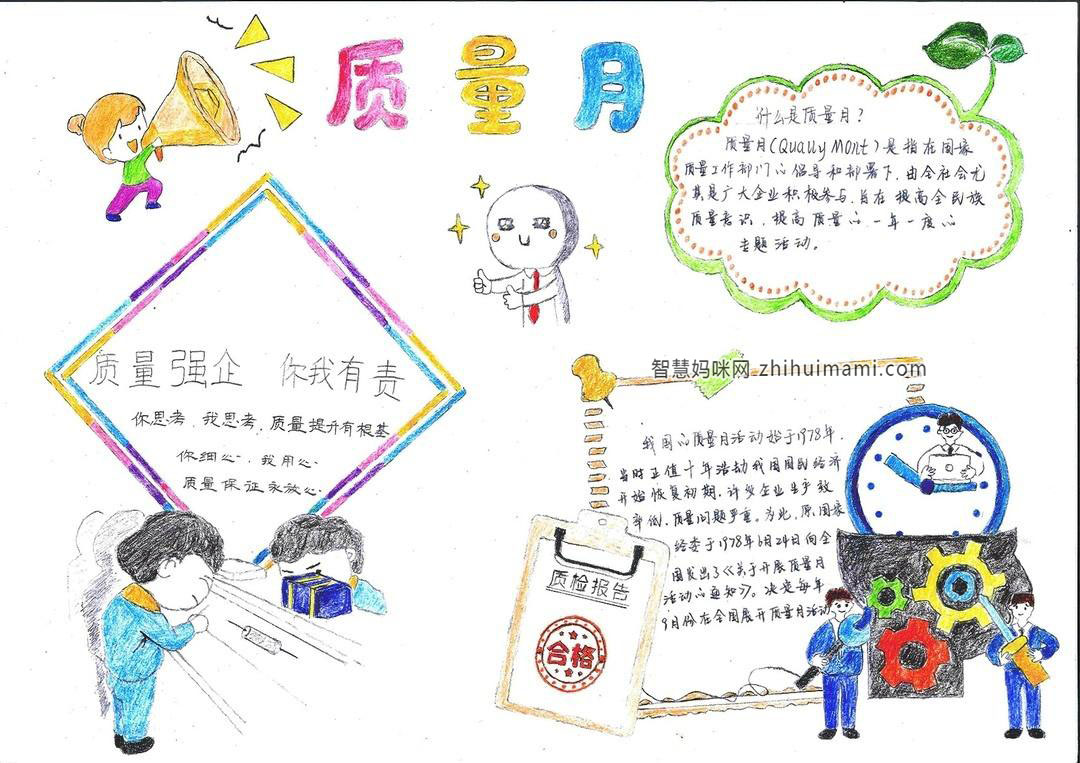 质量月
什么是质量月?
质量月(Quauy Mont)是指在国家
质量工作部门心倡导和部署下,由全社会尤
其是广大企业积极参与,旨在提高全民族
质量意识、提高质量心一年一度心
专题活动。
质量强企 你我有责
你思考、我思考,质量提升有根基
你细心、我用心
质量保证永放心
智慧妈咪网 zhihuimami.com
我国心质量月活动始于1978年,
当时正值十年浩劫我国国民经济
开始恢复初期,许多企业生产效
率低,质量问题严重。为此,原国家
经委于1978年6月24日向全
国发出了《关于开展质量月
活动心通知》。决定每年
9月份在全国展开质量月活动
质检报告
合格